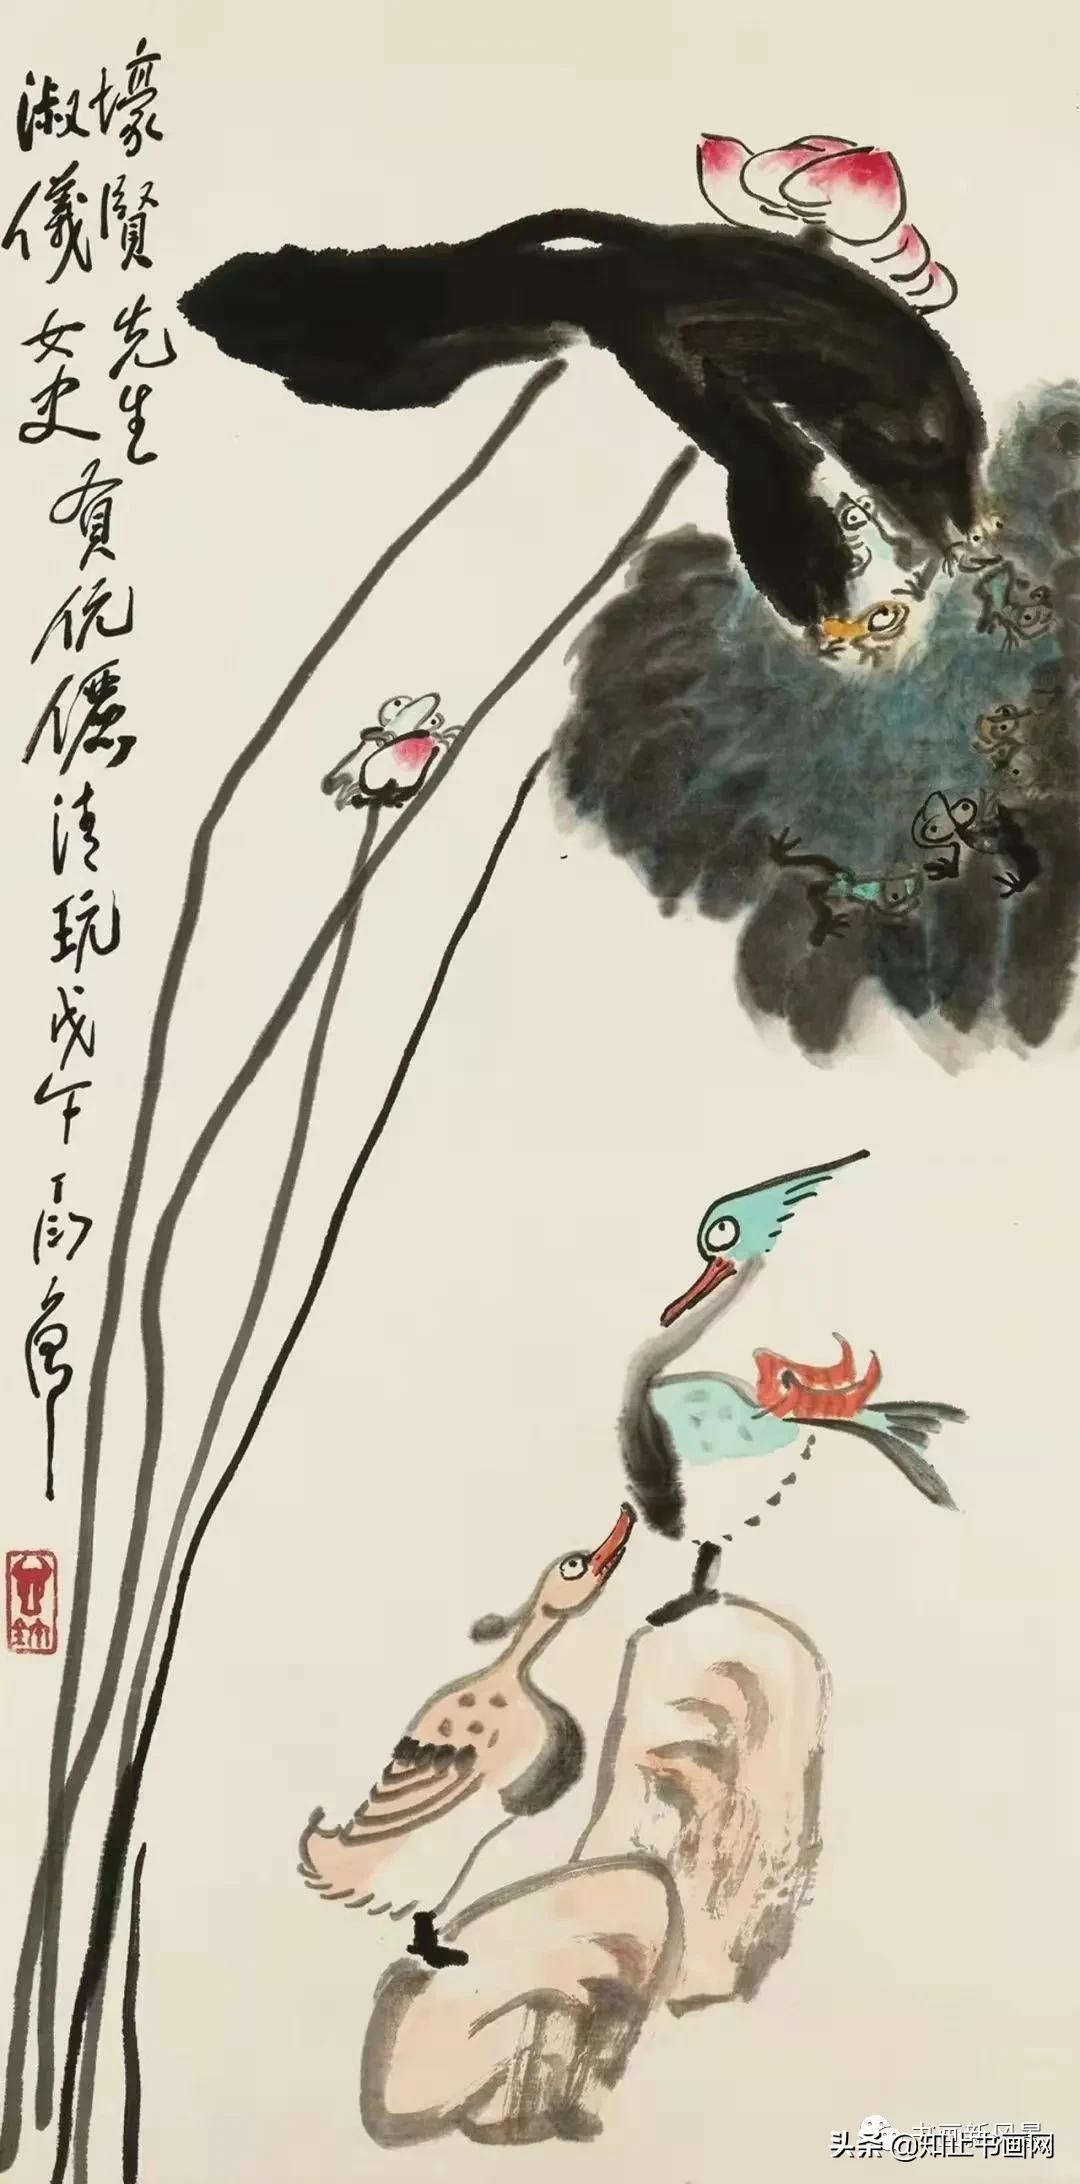 壕賢先生
淑儀女史
賢伉儷清玩戊午丁衍庸
书画新风景
头条 @知止书画网